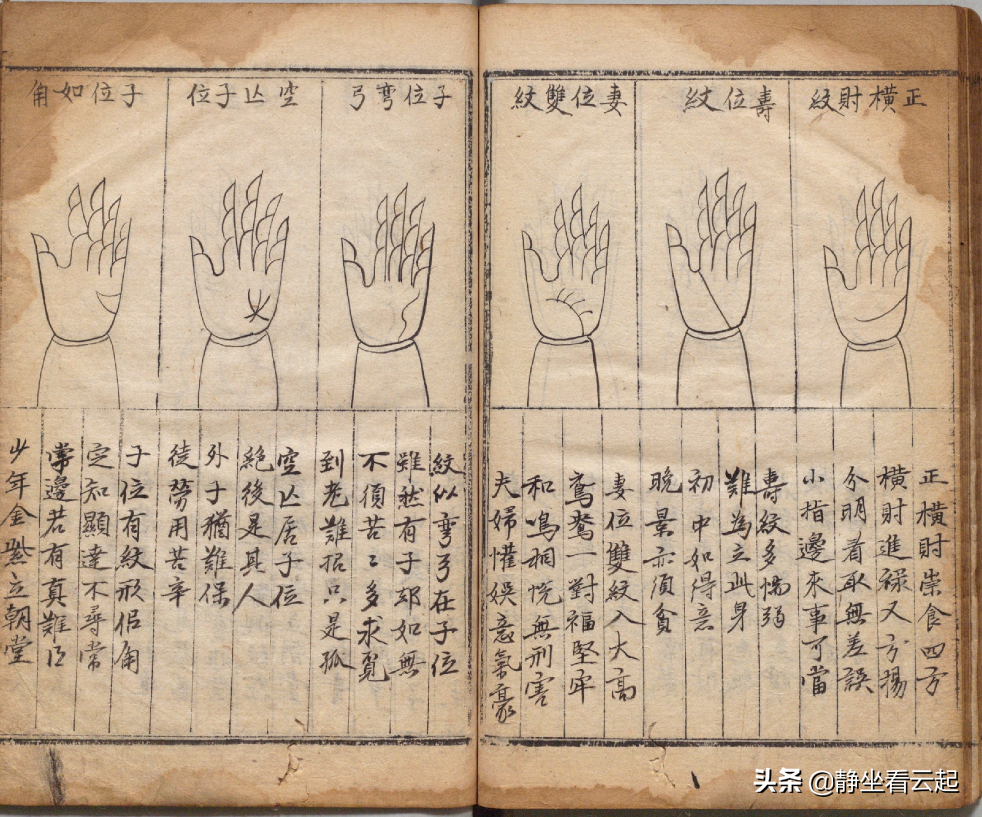 正橫財紋
正橫財祟食四方
橫財進祿又揚
分明看取無差誤
小指邊來事可當
壽位紋
壽紋多懦弱
難為立此身
初中如得意
晚景亦須貧
妻位雙紋
妻位雙紋入大高
鴛鴦一對福堅牢
和鳴相悅無刑害
夫婦懽娛意氣豪
子位彎弓
紋似彎弓在子位
雖然有子却如無
不須苦〻多求覓
到老難招只是孤
空亾子位
空亾居子位
絕後是其人
外子猶難保
徒勞用苦辛
子位如角
子位有紋形侣角
定知顯達不尋常
掌邊若有真難
少年金立朝堂
头条 @静坐看云起